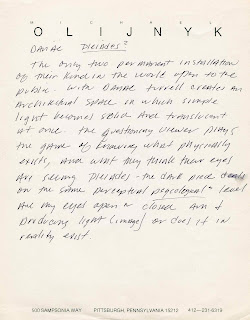 MICHAEL
OLIJNYK
DANAE Pleiades?
The only two permanent installation
of their kind in the world open to the
public with DANAE Turrell creates an
Architectural space in which simple
light becomes solid and translucent
at one. the questioning viewer plays
the game of knowing what physically
exists, and what they think their eyes
are seeing Pleiades - the dark piece deals
on the same perceptual level
Are my eyes open or closed Am I
producing light (image) or does it in
reality exist.
500 SAMPSONIA WAY PITTSBURGH, PENNSYLVANIA 15212 412-231-6319